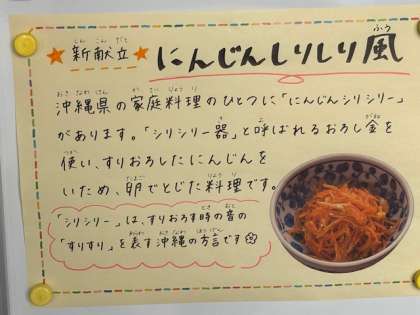 ★新献立★ にんじんしりしり風
沖縄県の家庭料理のひとつに「にんじんシリシリー」
があります。「シリシリー器」と呼ばれるおろし金を
使い、すりおろしたにんじんを
いため、卵でとじた料理です。
「シリシリー」は、すりおろす時の音の
「すりすり」を表す沖縄の方言です